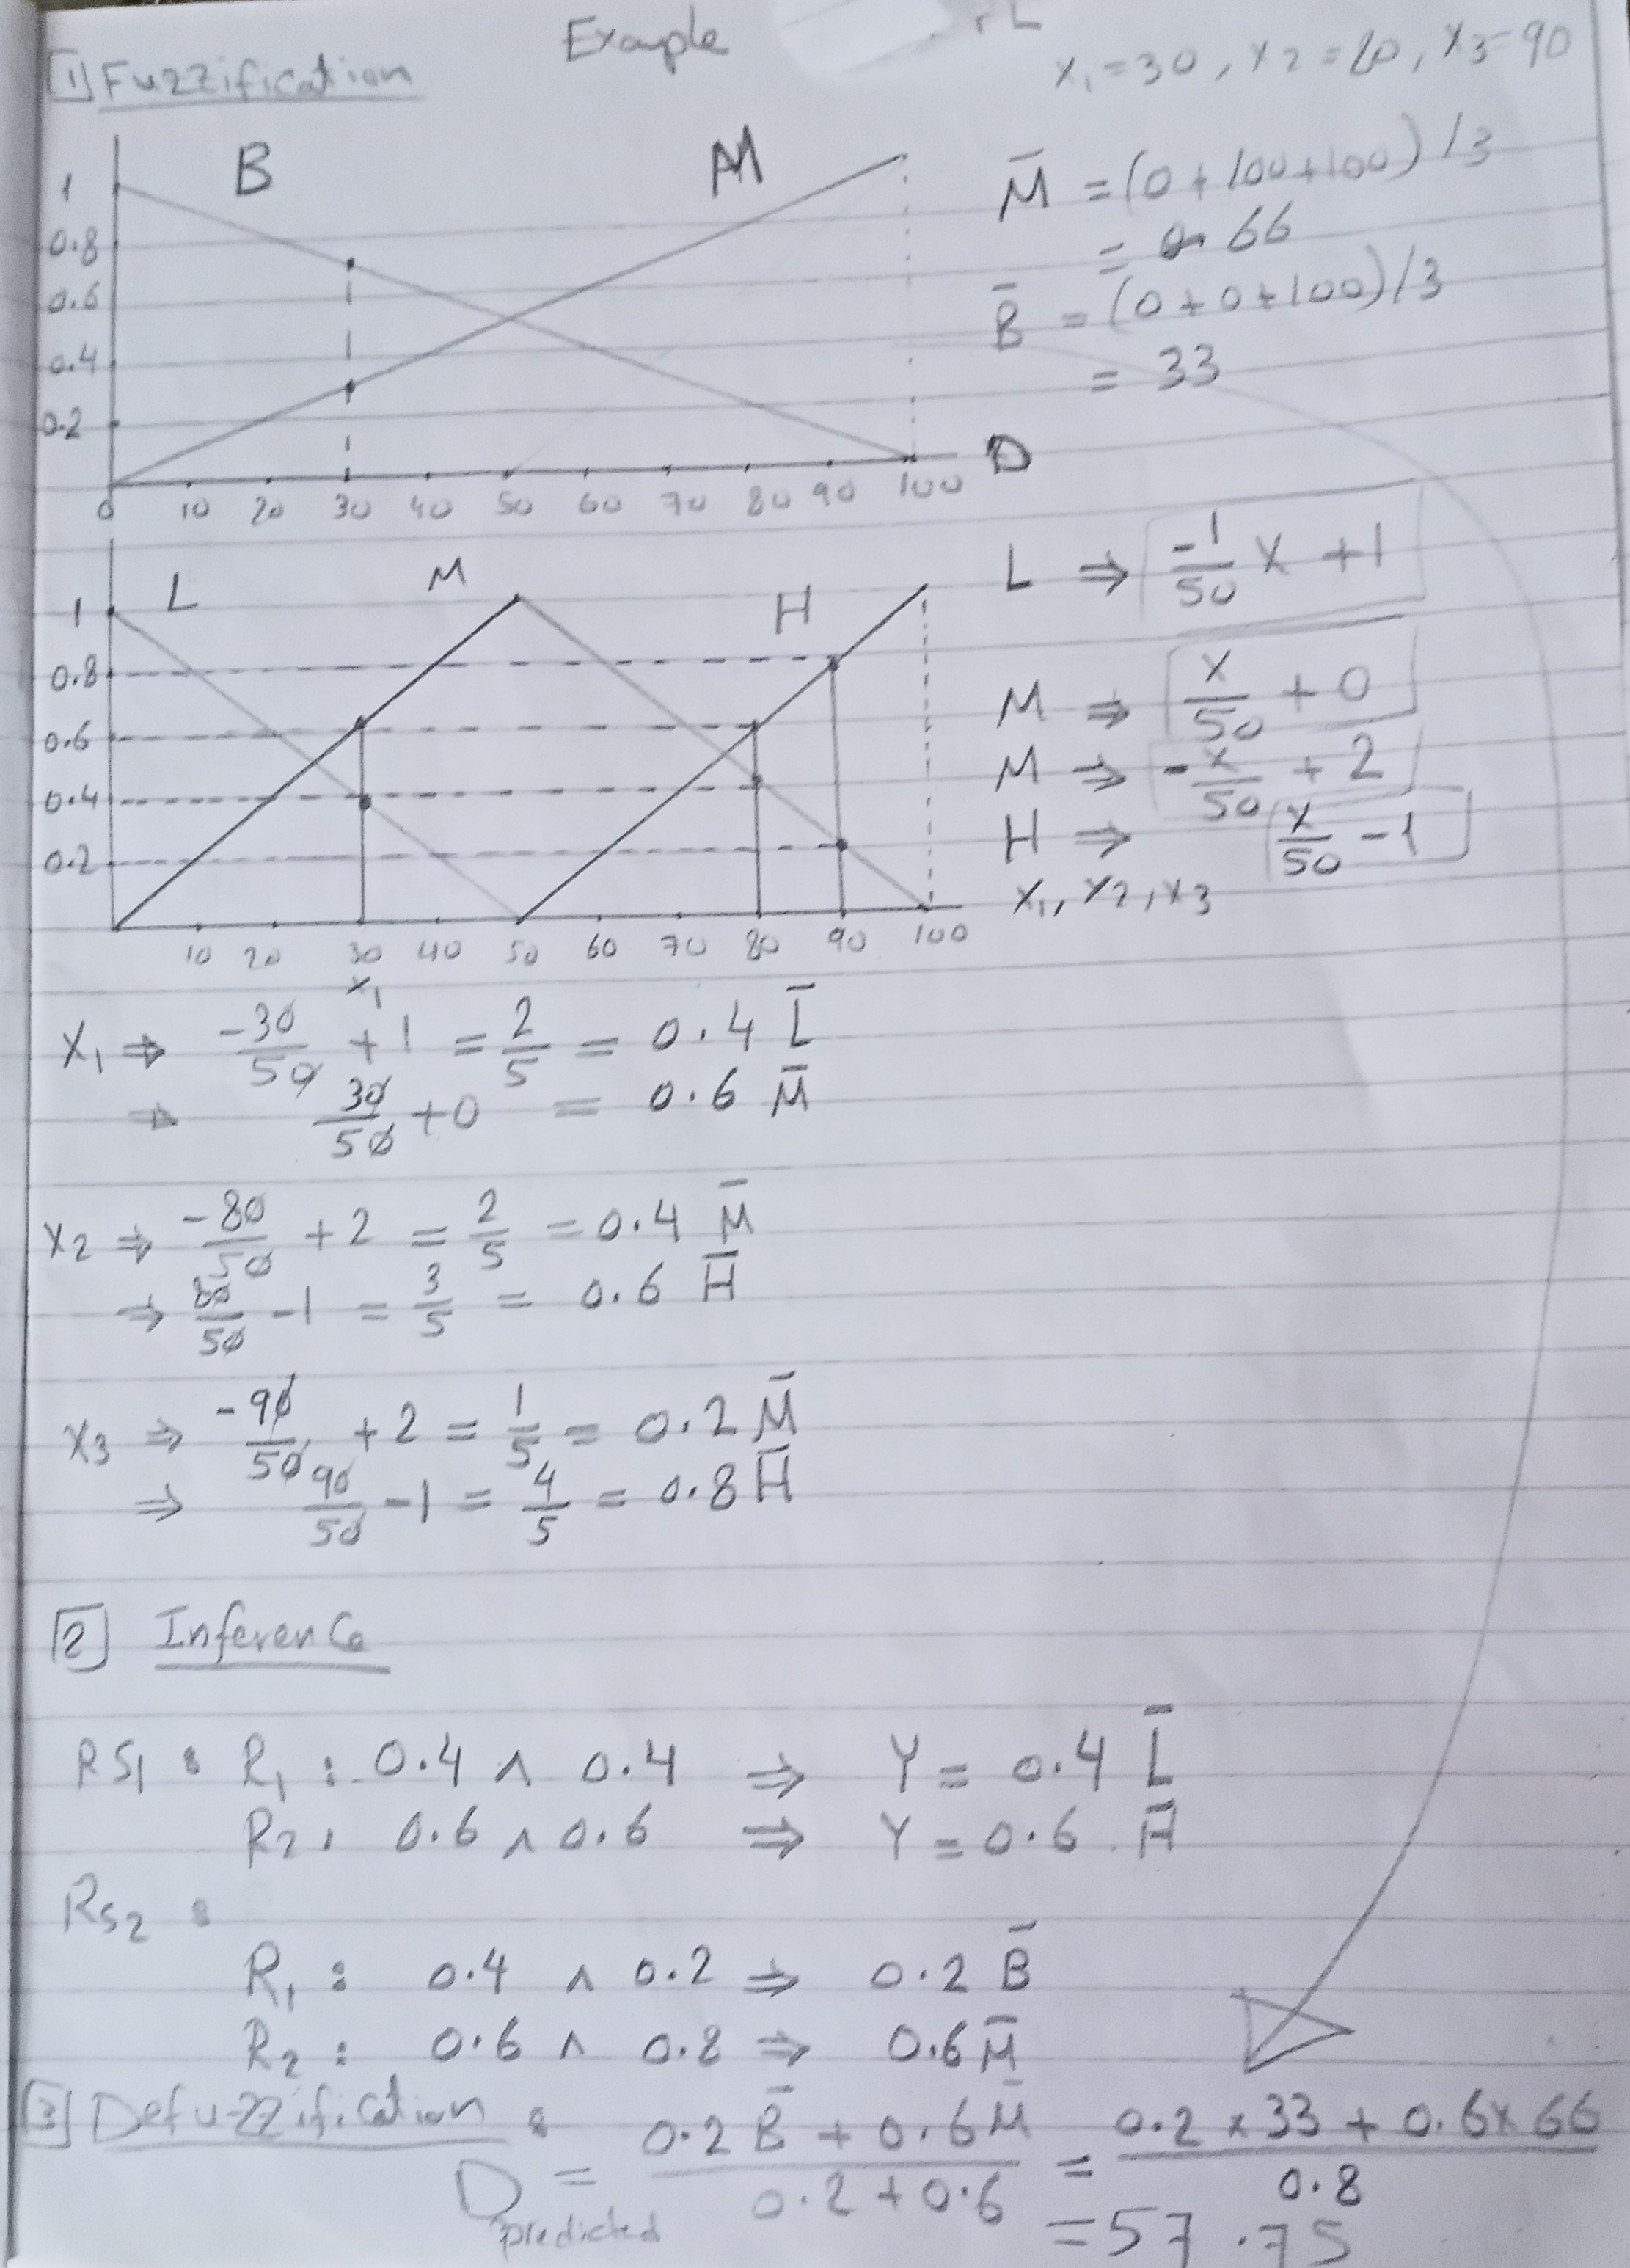 Example
x₁ = 30 , x₂ = 80 , x₃ = 90
[1] Fuzzification
B M
1
0.8
0.6
0.4
0.2
0 10 20 30 40 50 60 70 80 90 100 D
M̄ = (0 + 100 + 100) / 3
= 66
B̄ = (0 + 0 + 100) / 3
= 33
L M H
1
0.8
0.6
0.4
0.2
10 20 30 40 50 60 70 80 90 100
x₁
L ⇒ -1/50 x + 1
M ⇒ x/50 + 0
M ⇒ -x/50 + 2
H ⇒ x/50 - 1
x₁, x₂, x₃
x₁ ⇒ -30/50 + 1 = 2/5 = 0.4 L̄
⇒ 30/50 + 0 = 0.6 M̄
x₂ ⇒ -80/50 + 2 = 2/5 = 0.4 M̄
⇒ 80/50 - 1 = 3/5 = 0.6 H̄
x₃ ⇒ -90/50 + 2 = 1/5 = 0.2 M̄
⇒ 90/50 - 1 = 4/5 = 0.8 H̄
[2] Inference
RS₁ : R₁ : 0.4 ∧ 0.4 ⇒ Y = 0.4 L̄
R₂ : 0.6 ∧ 0.6 ⇒ Y = 0.6 . H̄
RS₂ :
R₁ : 0.4 ∧ 0.2 ⇒ 0.2 B̄
R₂ : 0.6 ∧ 0.8 ⇒ 0.6 M̄
[3] Defuzzification :
D predicted = (0.2 B̄ + 0.6 M̄) / (0.2 + 0.6) = (0.2 × 33 + 0.6 × 66) / 0.8
= 57.75